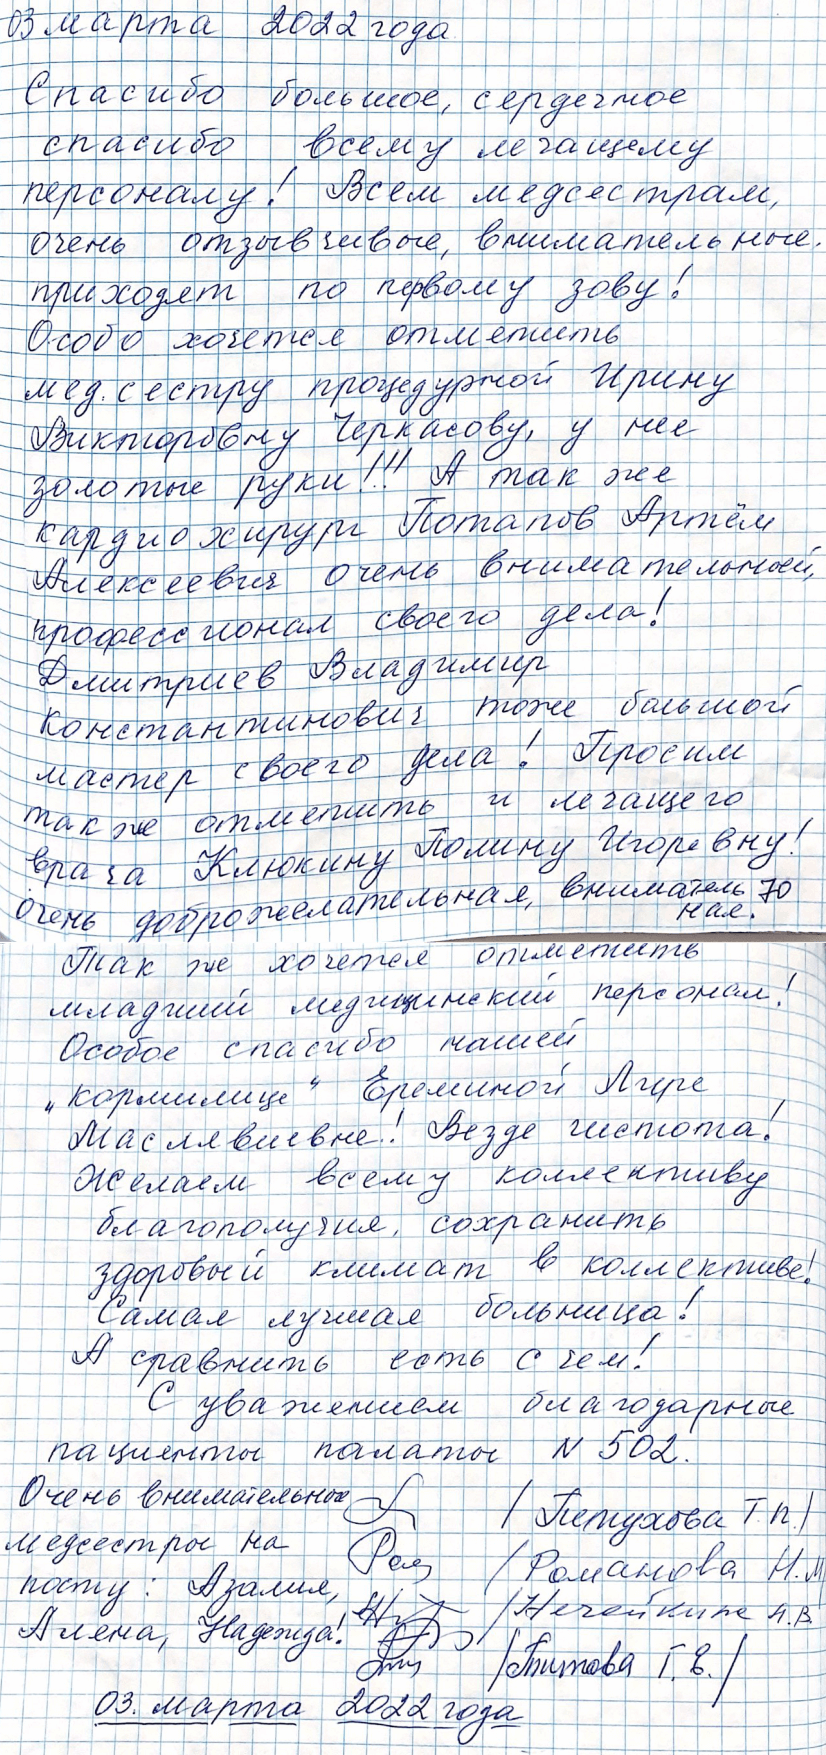 03 марта 2022 года
Спасибо большое, сердечное
спасибо всему лечащему
персоналу! Всем медсестрам,
очень отзывчивые, внимательные.
приходят по первому зову!
Особо хочется отметить
мед. сестру процедурной Ирину
Викторовну Черкасову, у нее
золотые руки!!! А так же
кардиохирург Потапов Артём
Алексеевич очень внимательный,
профессионал своего дела!
Дмитриев Владимир
Константинович тоже большой
мастер своего дела! Просим
так же отметить и лечащего
врача Клюкину Полину Игоревну!
Очень доброжелательная, вниматель
ная.
70
Так же хочется отметить
младший медицинский персонал!
Особое спасибо нашей
„кормилице“ Ереминой
Везде чистота!
Желаем всему коллективу
благополучия, сохранить
здоровый климат в коллективе!
Самая лучшая больница!
А сравнить есть с чем!
С уважением благодарные
пациенты палаты N 502.
Очень внимательные
медсестры на
посту: Азалия,
Алена, Надежда!
/Петухова Т.П./
/Романова Н.М
/Нечайкина
/Титова Г.В./
03. марта 2022 года